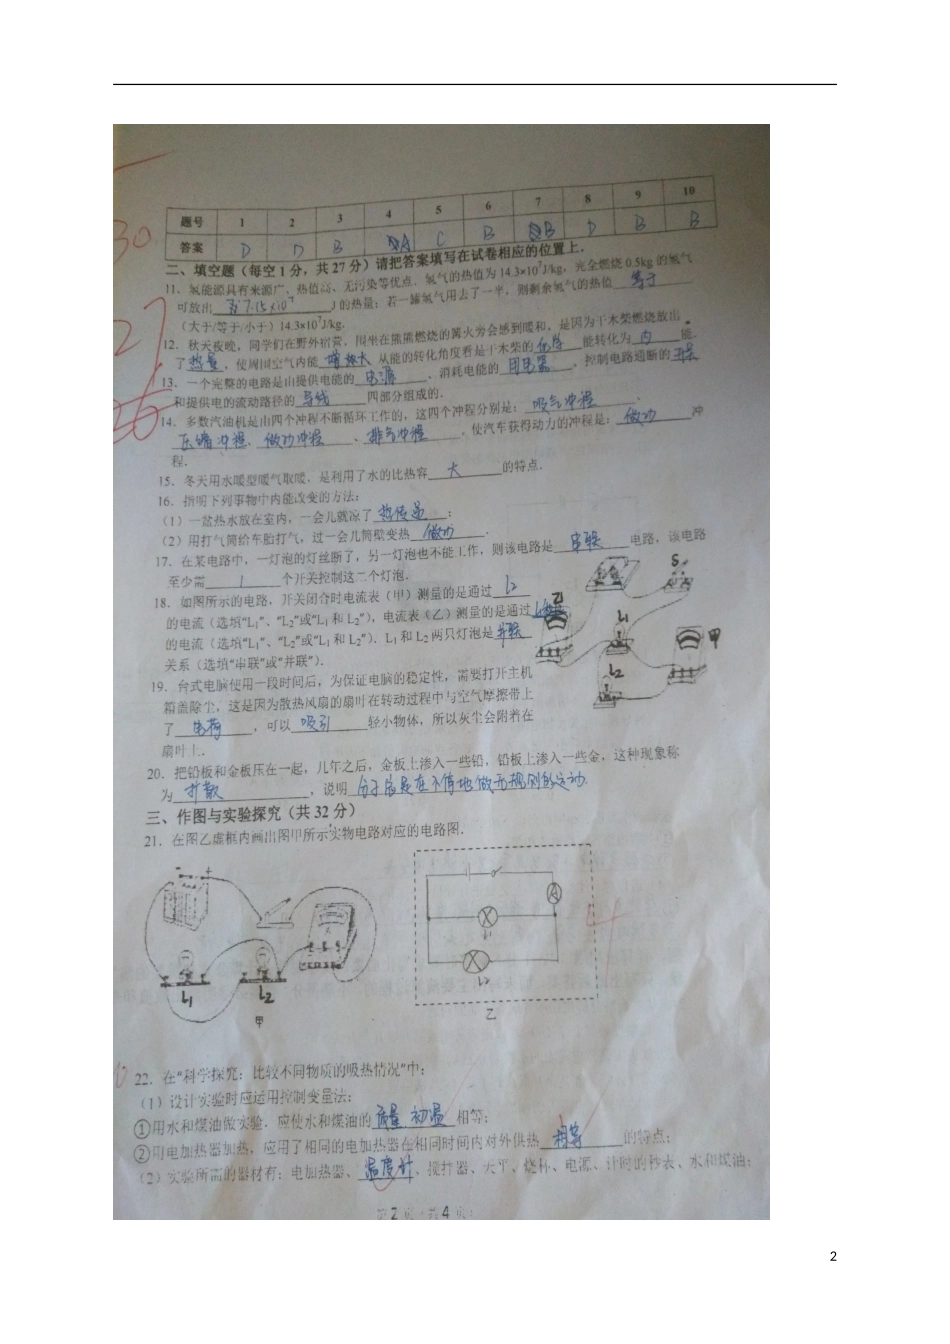 题号 1 2 3 4 5 6 7 8 9 10
答案 D D B A C B B D B B
二、填空题（每空1分，共27分）请把答案填写在试卷相应的位置上.
11、氢能源具有来源广、热值高、无污染等优点. 氢气的热值为14.3×10⁷J/kg，完全燃烧0.5kg的氢气
可放出 7.15×10⁷ J的热量；若一罐氢气用去了一半，则剩余氢气的热值 等于
（大于/等于/小于）14.3×10⁷J/kg.
12．秋天夜晚，同学们在野外宿营，围坐在熊熊燃烧的篝火旁会感到暖和，是因为干木柴燃烧放出
了 热量 ，使周围空气内能 增大 从能的转化角度看是干木柴的 化学 能转化为 内 能.
13、一个完整的电路是由提供电能的 电源 、消耗电能的 用电器 、控制电路通断的 开关
和提供电的流动路径的 导线 四部分组成的.
14．多数汽油机是由四个冲程不断循环工作的，这四个冲程分别是： 吸气冲程 、
压缩冲程 、 做功冲程 、 排气冲程 ，使汽车获得动力的冲程是： 做功 冲
程.
15．冬天用水暖型暖气取暖，是利用了水的比热容 大 的特点.
16．指明下列事物中内能改变的方法：
（1）一盆热水放在室内，一会儿就凉了 热传递 ；
（2）用打气筒给车胎打气，过一会儿筒壁变热 做功 .
17．在某电路中，一灯泡的灯丝断了，另一灯泡也不能工作，则该电路是 串联 电路，该电路
至少需 1 个开关控制这二个灯泡.
18．如图所示的电路，开关闭合时电流表（甲）测量的是通过 L2
的电流（选填“L₁”、“L₂”或“L₁和L₂”），电流表（乙）测量的是通过
的电流（选填“L₁”、“L₂”或“L₁和L₂”）．L₁和L₂两只灯泡是 并联
关系（选填“串联”或“并联”）.
乙 S L1 甲 L2
19．台式电脑使用一段时间后，为保证电脑的稳定性，需要打开主机
箱盖除尘，这是因为散热风扇的扇叶在转动过程中与空气摩擦带上
了 电荷 ，可以 吸引 轻小物体，所以灰尘会附着在
扇叶上.
20．把铅板和金板压在一起，几年之后，金板上渗入一些铅，铅板上渗入一些金，这种现象称
为 扩散 ，说明 分子总是在不停地做无规则的运动.
三、作图与实验探究（共32分）
21．在图乙虚框内画出图甲所示实物电路对应的电路图.
- +
A
L1
L2
L1 L2
甲 乙
22．在“科学探究：比较不同物质的吸热情况”中：
（1）设计实验时应运用控制变量法：
①用水和煤油做实验，应使水和煤油的 质量 初温 相等；
②用电加热器加热，应用了相同的电加热器在相同时间内对外供热 相等 的特点；
（2）实验所需的器材有：电加热器、 温度计 、搅拌器、天平、烧杯、电源、计时的秒表、水和煤油；
第2页（共4页）
2